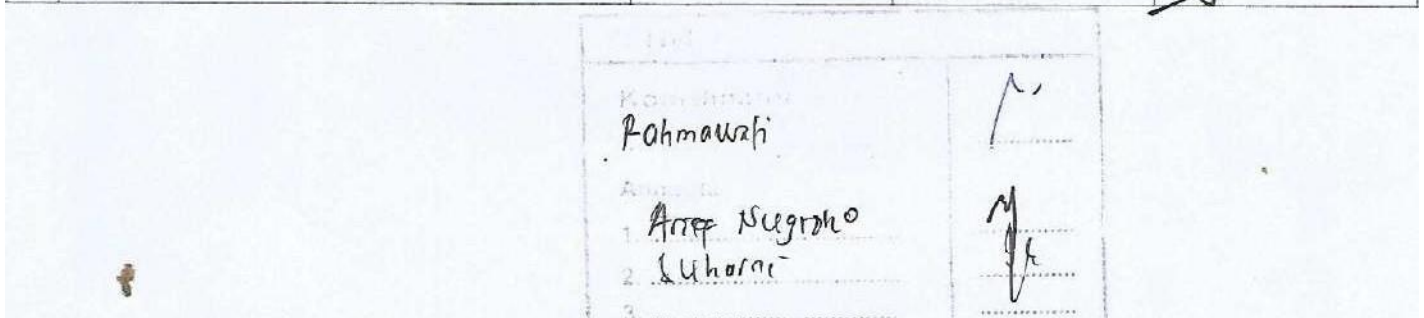 Koordinator
Rahmawati
Anggota
1. Arief Nugroho
2. Suharni
3.